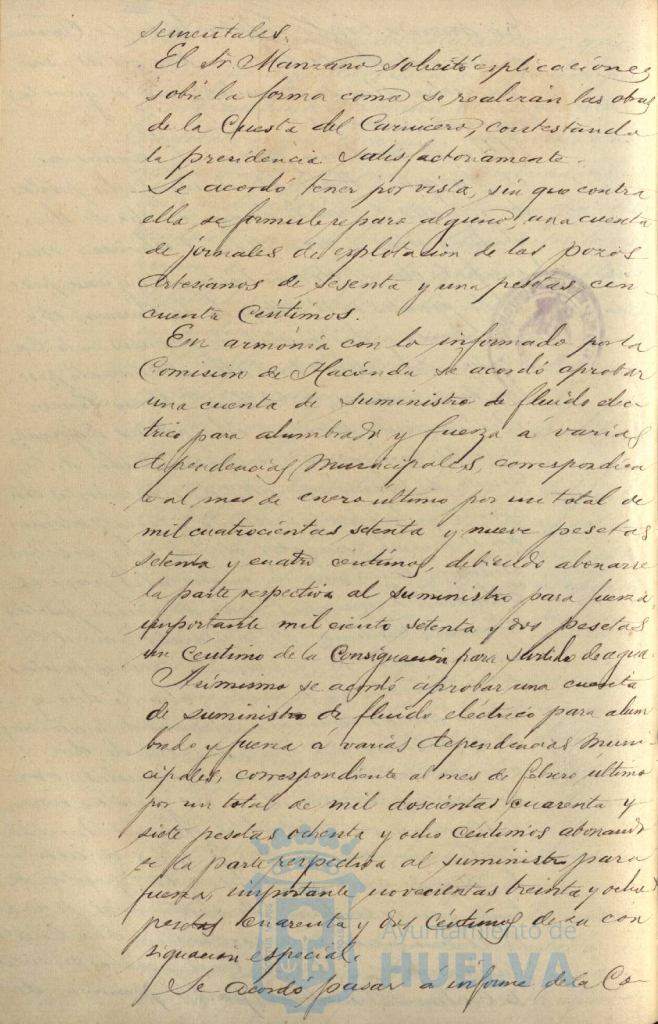 sementales.
El Sr. Manzano solicitó explicaciones
sobre la forma como se realizan las obras
de la Cuesta del Carnicero, contestando
la presidencia satisfactoriamente.
Se acordó tener por vista, sin que contra
ella se formule reparo alguno, una cuenta
de jornales de explotacion de los pozos
artesianos de sesenta y una pesetas, cin
cuenta céntimos.
En armonia con lo informado por la
Comision de Hacienda se acordó aprobar
una cuenta de suministro de fluido eléc
trico para alumbrado y fuerza á varias
dependencias Municipales, correspondien
te al mes de enero ultimo por un total de
mil cuatrocientas setenta y nueve pesetas
setenta y cuatro céntimos, debiendo abonarse
la parte respectiva al suministro para fuerza,
importante mil ciento setenta y dos pesetas
un céntimo de la Consignación para surtido de agua.
Asimismo se acordó aprobar una cuenta
de suministro de fluido eléctrico para alum
brado y fuerza á varias dependencias Muni-
cipales, correspondiente al mes de febrero último
por un total de mil doscientas cuarenta y
siete pesetas ochenta y ocho céntimos abonando
se la parte respectiva al suministro para
fuerza, importante novecientas treinta y ocho
pesetas cuarenta y dos céntimos de su con
signacion especial.
Se acordó pasar á informe de la Co-
Ayuntamiento de
HUELVA